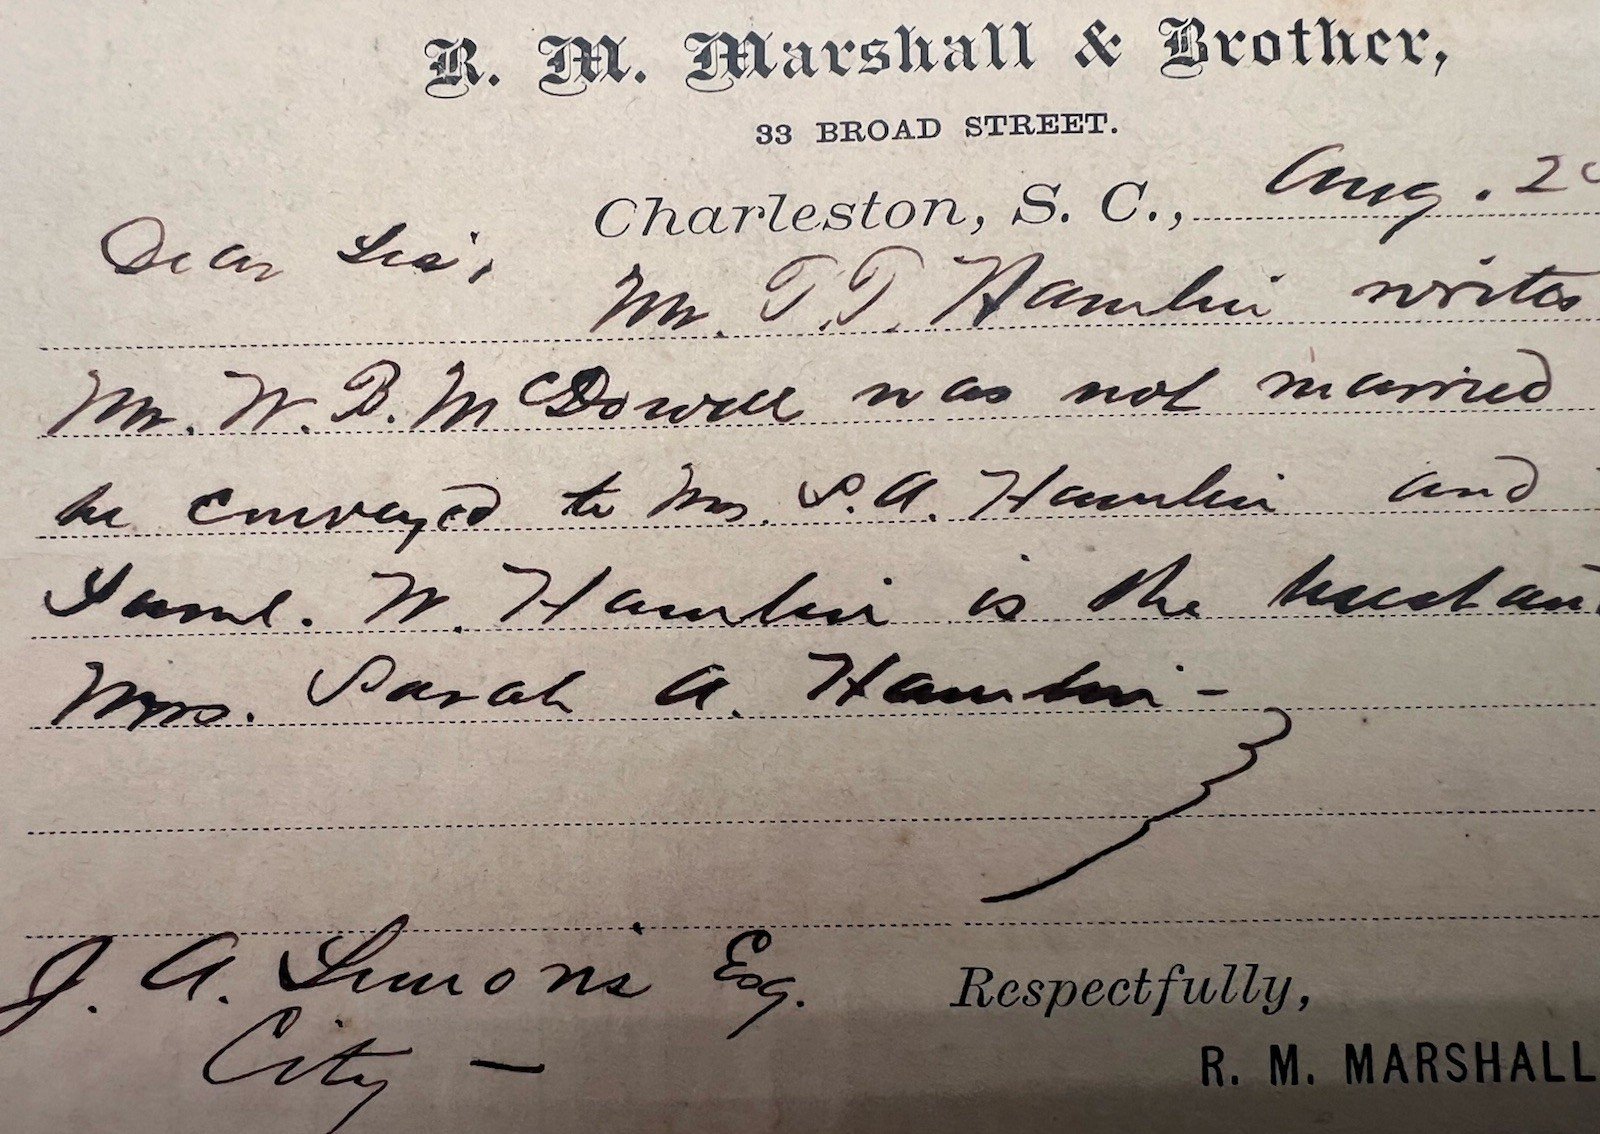 R. M. Marshall & Brother,
33 BROAD STREET.
Charleston, S. C., Aug. 2
Dear Sir,
Mr. T. T. Hamlin writes
Mr. W. B. McDowell was not married
he conveyed to Mrs. S. A. Hamlin and
Saml. W. Hamlin is the
Mrs. Sarah A. Hamlin -
J. A. Simons Esq.
City -
Respectfully,
R. M. MARSHALL